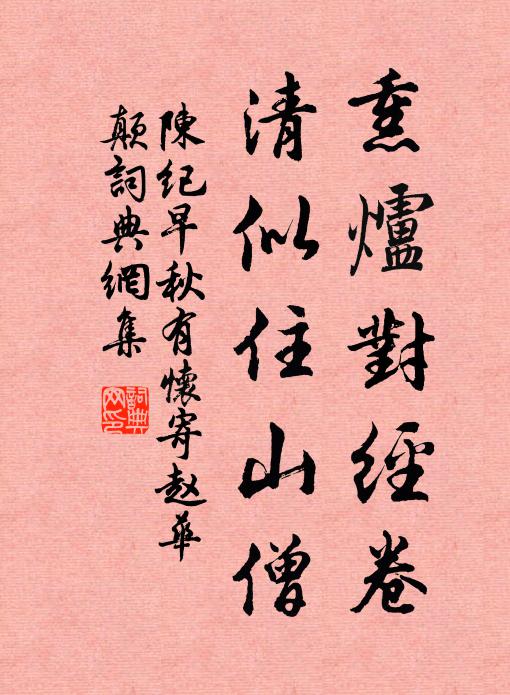 熏爐對經卷
清似住山僧
陳紀早秋有懷寄赵華
顛詞典網集
詞典网印